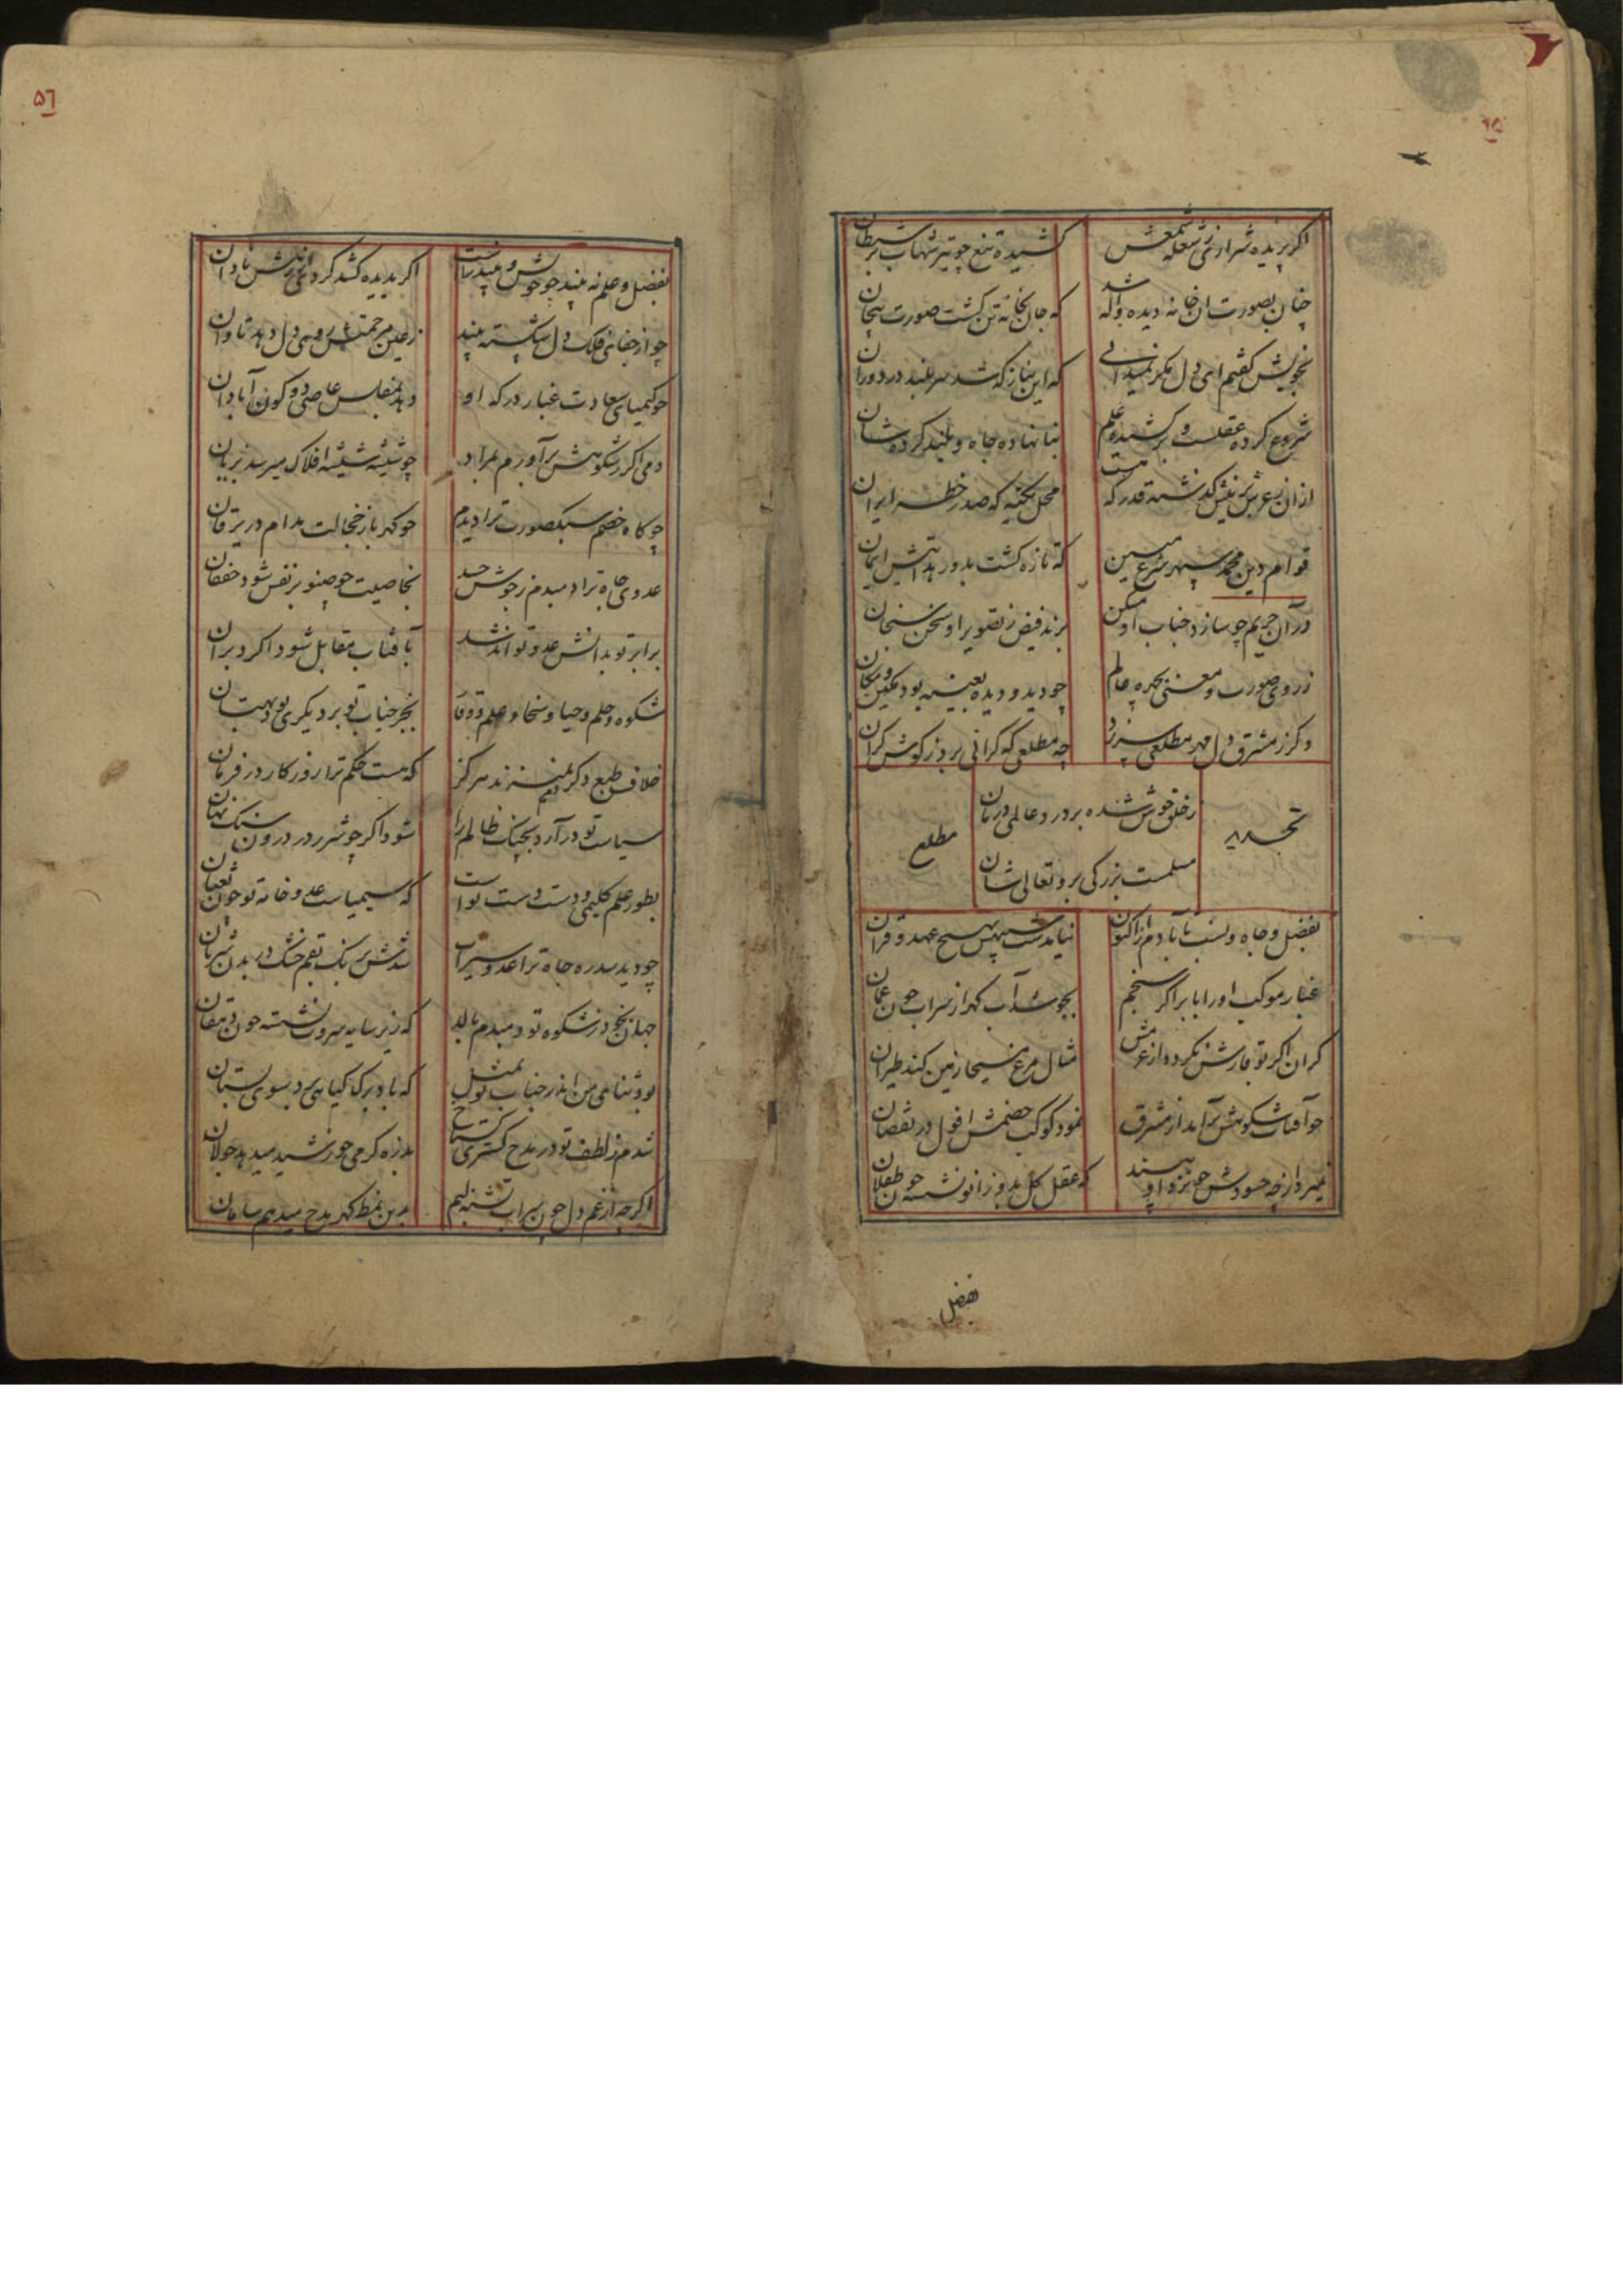 اکر پریده شرار از تف شعله شمعش
کشیده تیغ چو تیر شهاب بر شیطان
چنان بصورت ان خانه دیده واله شد
که جان بخانه تن کشت صورت بیجان
بخویش کفتم ای دل مکر نمیدانی
که این بناز که شد سر بلند در دوران
شروع کرده عقلست و برکشیده علم
بنا نهاده جاه و بلند کرده شان
ازان ز عرش برینش کذشته قدر که هست
محل تکیه که صدر خطه ایران
قوام دین محمد سپهر شرع مبین
که تازه کشت بدور هدایتش ایمان
دران حریم چو سازد جناب او مسکن
برند فیض ز تصویر او سخن سنجان
ز روی صورت و معنی بچهره عالم
چو دید و دیده بعینه بود مکین و مکان
و کر ز مشرق دل مهر مطلعی سر زد
چه مطلعی که کرانی برد ز کوش کران
تجدید
مطلع
ز خلق خوش شده بر درد عالمی درمان
مسلمست بزرکی برو تعالی شان
بفضل و جاه و نسب تا بآدم از اکنون
نیامدست به پیش هیچ عهد و قران
غبار موکب او را با برا کر سنجم
بجوشد آب کهر از سراب چون عمان
کران اکر تو قارش نکردد از عرمش
مثال مرغ مسیحا زمین کند طیران
چو آفتاب شکوهش برآمد از مشرق
نمود کوکب خصمش افول در نقصان
نمیرد از چه حسودش چو نزد او بیند
که عقل کل بدو زانو نشسته چون طفلان
بفضل
بفضل و علم نه بیند چو خویش و بیند راست
اکر بدیده کشد کرد دانشش نادان
چو از جفای فلک دل شکسته بیند
ز عین مرحمتش روی دل دهد تاوان
چو کیمیای سعادت غبار درکه او
دهد بمفلس عاصی دو کون آبادان
دمی اکر ز شکوهش برآورم بمراد
چو شیشه شیشه افلاک میرسد بزیان
چو کاه خصم سبکصورت ترا دیدم
چو کهربا ز خجالت مدام در یرقان
عدوی جاه ترا دمبدم ز جوش حسد
بخاصیت چو صنوبر نفس شود خفقان
برابر تو بدانش عدو تواند شد
بآفتاب مقابل شود اکر دبران
شکوه و حلم و حیا و سخا و علم و وقار
بجز جناب تو بر دیکری بود بهتان
خلاف طبع دکر دم نمیزند هرکز
که هست حکم ترا روزکار در فرمان
سیاست تو درآرد بچنک ظالم را
شود اکر چو شرر در درون سنک نهان
بطور علم کلیمی و دست دست تو است
که سیمیاست عدو خامه تو چون ثعبان
چو دید سدره جاه ترا عدو سیراب
شدش برنک بقم خشک در بدن شریان
جهان بخود ز شکوه تو دمبدم بالد
که زیر سایه سروت نشسته چون دهقان
بود ثنای من اندر جناب تو بمثل
که باد برک کیاهی برد بسوی بستان
شدم ز لطف تو در مدح کستری کستاخ
بذره کرمی خورشید میدهد جولان
اکر چه از غم دل چون سراب تشنه لبم
بدین نمط کهر مدح میدهم سامان